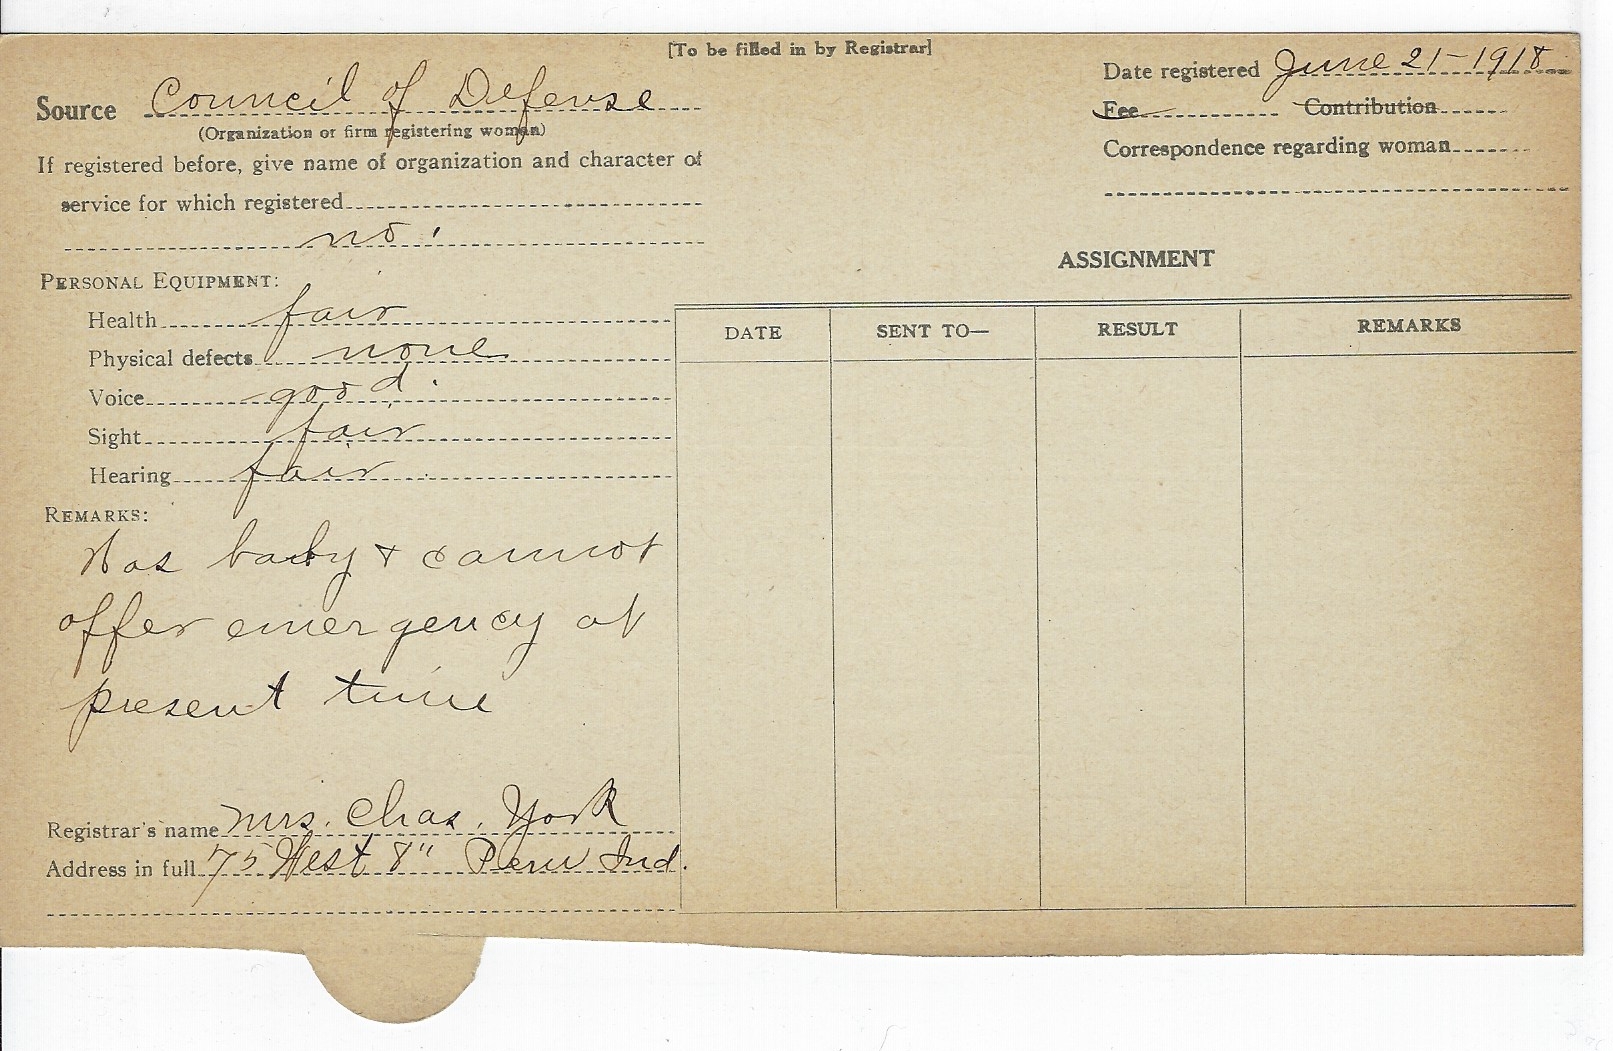 [To be filled in by Registrar]
Source Council of Defense
(Organization or firm registering woman)
If registered before, give name of organization and character of
service for which registered
no.
PERSONAL EQUIPMENT:
Health fair
Physical defects none
Voice good.
Sight fair
Hearing fair.
REMARKS:
Has baby & cannot
offer emergency at
present time
Registrar's name Mrs. Chas. York
Address in full 75 West 8" Peru Ind.
Date registered June 21-1918
Fee Contribution
Correspondence regarding woman
ASSIGNMENT
DATE SENT TO— RESULT REMARKS